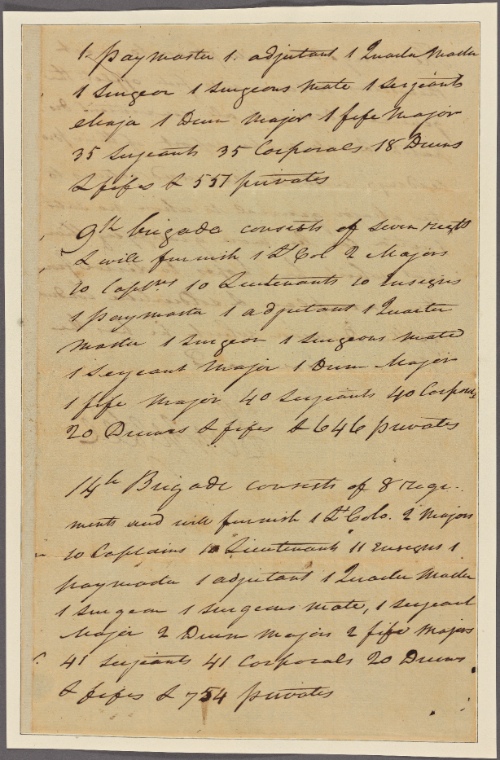 1 paymaster 1 adjutant 1 Quarter Master
1 surgeon 1 surgeons mate 1 sergeants
1 Drum Major 1 fife Major
35 sergeants 35 Corporals 18 Drums
& fifes & 557 privates
9th brigade consists of seven regts
& will furnish 1 Lt Col 2 Majors
10 Captns 10 Lieutenants 10 Ensigns
1 paymaster 1 adjutant 1 Quarter
master 1 surgeon 1 surgeons mate
1 Sergeant Major 1 Drum Major
1 fife Major 40 sergeants 40 Corporls
20 Drums & fifes & 646 privates
14th Brigade consists of 8 regi-
ments and will furnish 1 Lt Colo. 2 Majors
10 Captains 10 Lieutenants 11 Ensigns 1
paymaster 1 adjutant 1 Quarter Master
1 surgeon 1 surgeons mate, 1 sergeant
Major 2 Drum Majors 2 fife Majors
41 sergeants 41 Corporals 20 Drums
& fifes & 754 privates